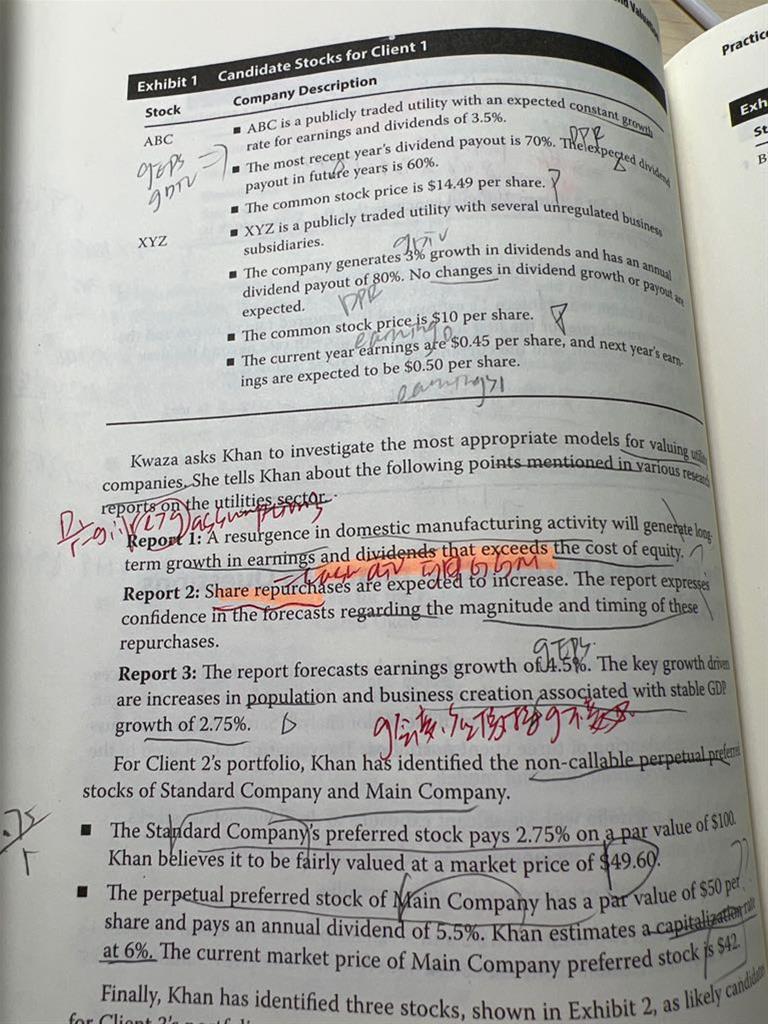 nd Valuation
Practice
Exhibit 1 Candidate Stocks for Client 1
Stock Company Description
ABC ■ ABC is a publicly traded utility with an expected constant growth
rate for earnings and dividends of 3.5%.
DPR
gEPS
■ The most recent year's dividend payout is 70%. The expected dividend
gDIV
payout in future years is 60%.
■ The common stock price is $14.49 per share. P
XYZ ■ XYZ is a publicly traded utility with several unregulated business
subsidiaries.
gDIV
■ The company generates 3% growth in dividends and has an annual
dividend payout of 80%. No changes in dividend growth or payout are
expected.
DPR
■ The common stock price is $10 per share. P
earning0
■ The current year earnings are $0.45 per share, and next year's earn-
ings are expected to be $0.50 per share.
earnings1
Exh
St
B
Kwaza asks Khan to investigate the most appropriate models for valuing utility
companies. She tells Khan about the following points mentioned in various research
reports on the utilities sector.
(r>g) assumptions
Report 1: A resurgence in domestic manufacturing activity will generate long-
term growth in earnings and dividends that exceeds the cost of equity.
Report 2: Share repurchases are expected to increase. The report expresses
confidence in the forecasts regarding the magnitude and timing of these
repurchases.
gEPS
Report 3: The report forecasts earnings growth of 4.5%. The key growth drivers
are increases in population and business creation associated with stable GDP
growth of 2.75%.
For Client 2's portfolio, Khan has identified the non-callable perpetual preferred
stocks of Standard Company and Main Company.
■ The Standard Company's preferred stock pays 2.75% on a par value of $100.
Khan believes it to be fairly valued at a market price of $49.60.
■ The perpetual preferred stock of Main Company has a par value of $50 per
share and pays an annual dividend of 5.5%. Khan estimates a capitalization rate
at 6%. The current market price of Main Company preferred stock is $42.
Finally, Khan has identified three stocks, shown in Exhibit 2, as likely candidates
for Client 2's